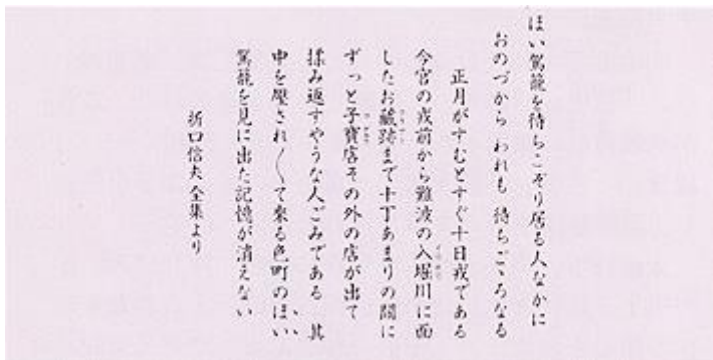 ほい駕籠を待ちこぞり居る人なかに
おのづから われも 待ちごゝろなる
正月がすむとすぐ十日戎である
今宮の戎前から難波の入堀川に面
したお蔵跡まで十丁あまりの間に
ずっと子寶店その外の店が出て
揉み返すやうな人ごみである 其
中を壓され〱て来る色町のほい
駕籠を見に出た記憶が消えない
折口信夫全集より